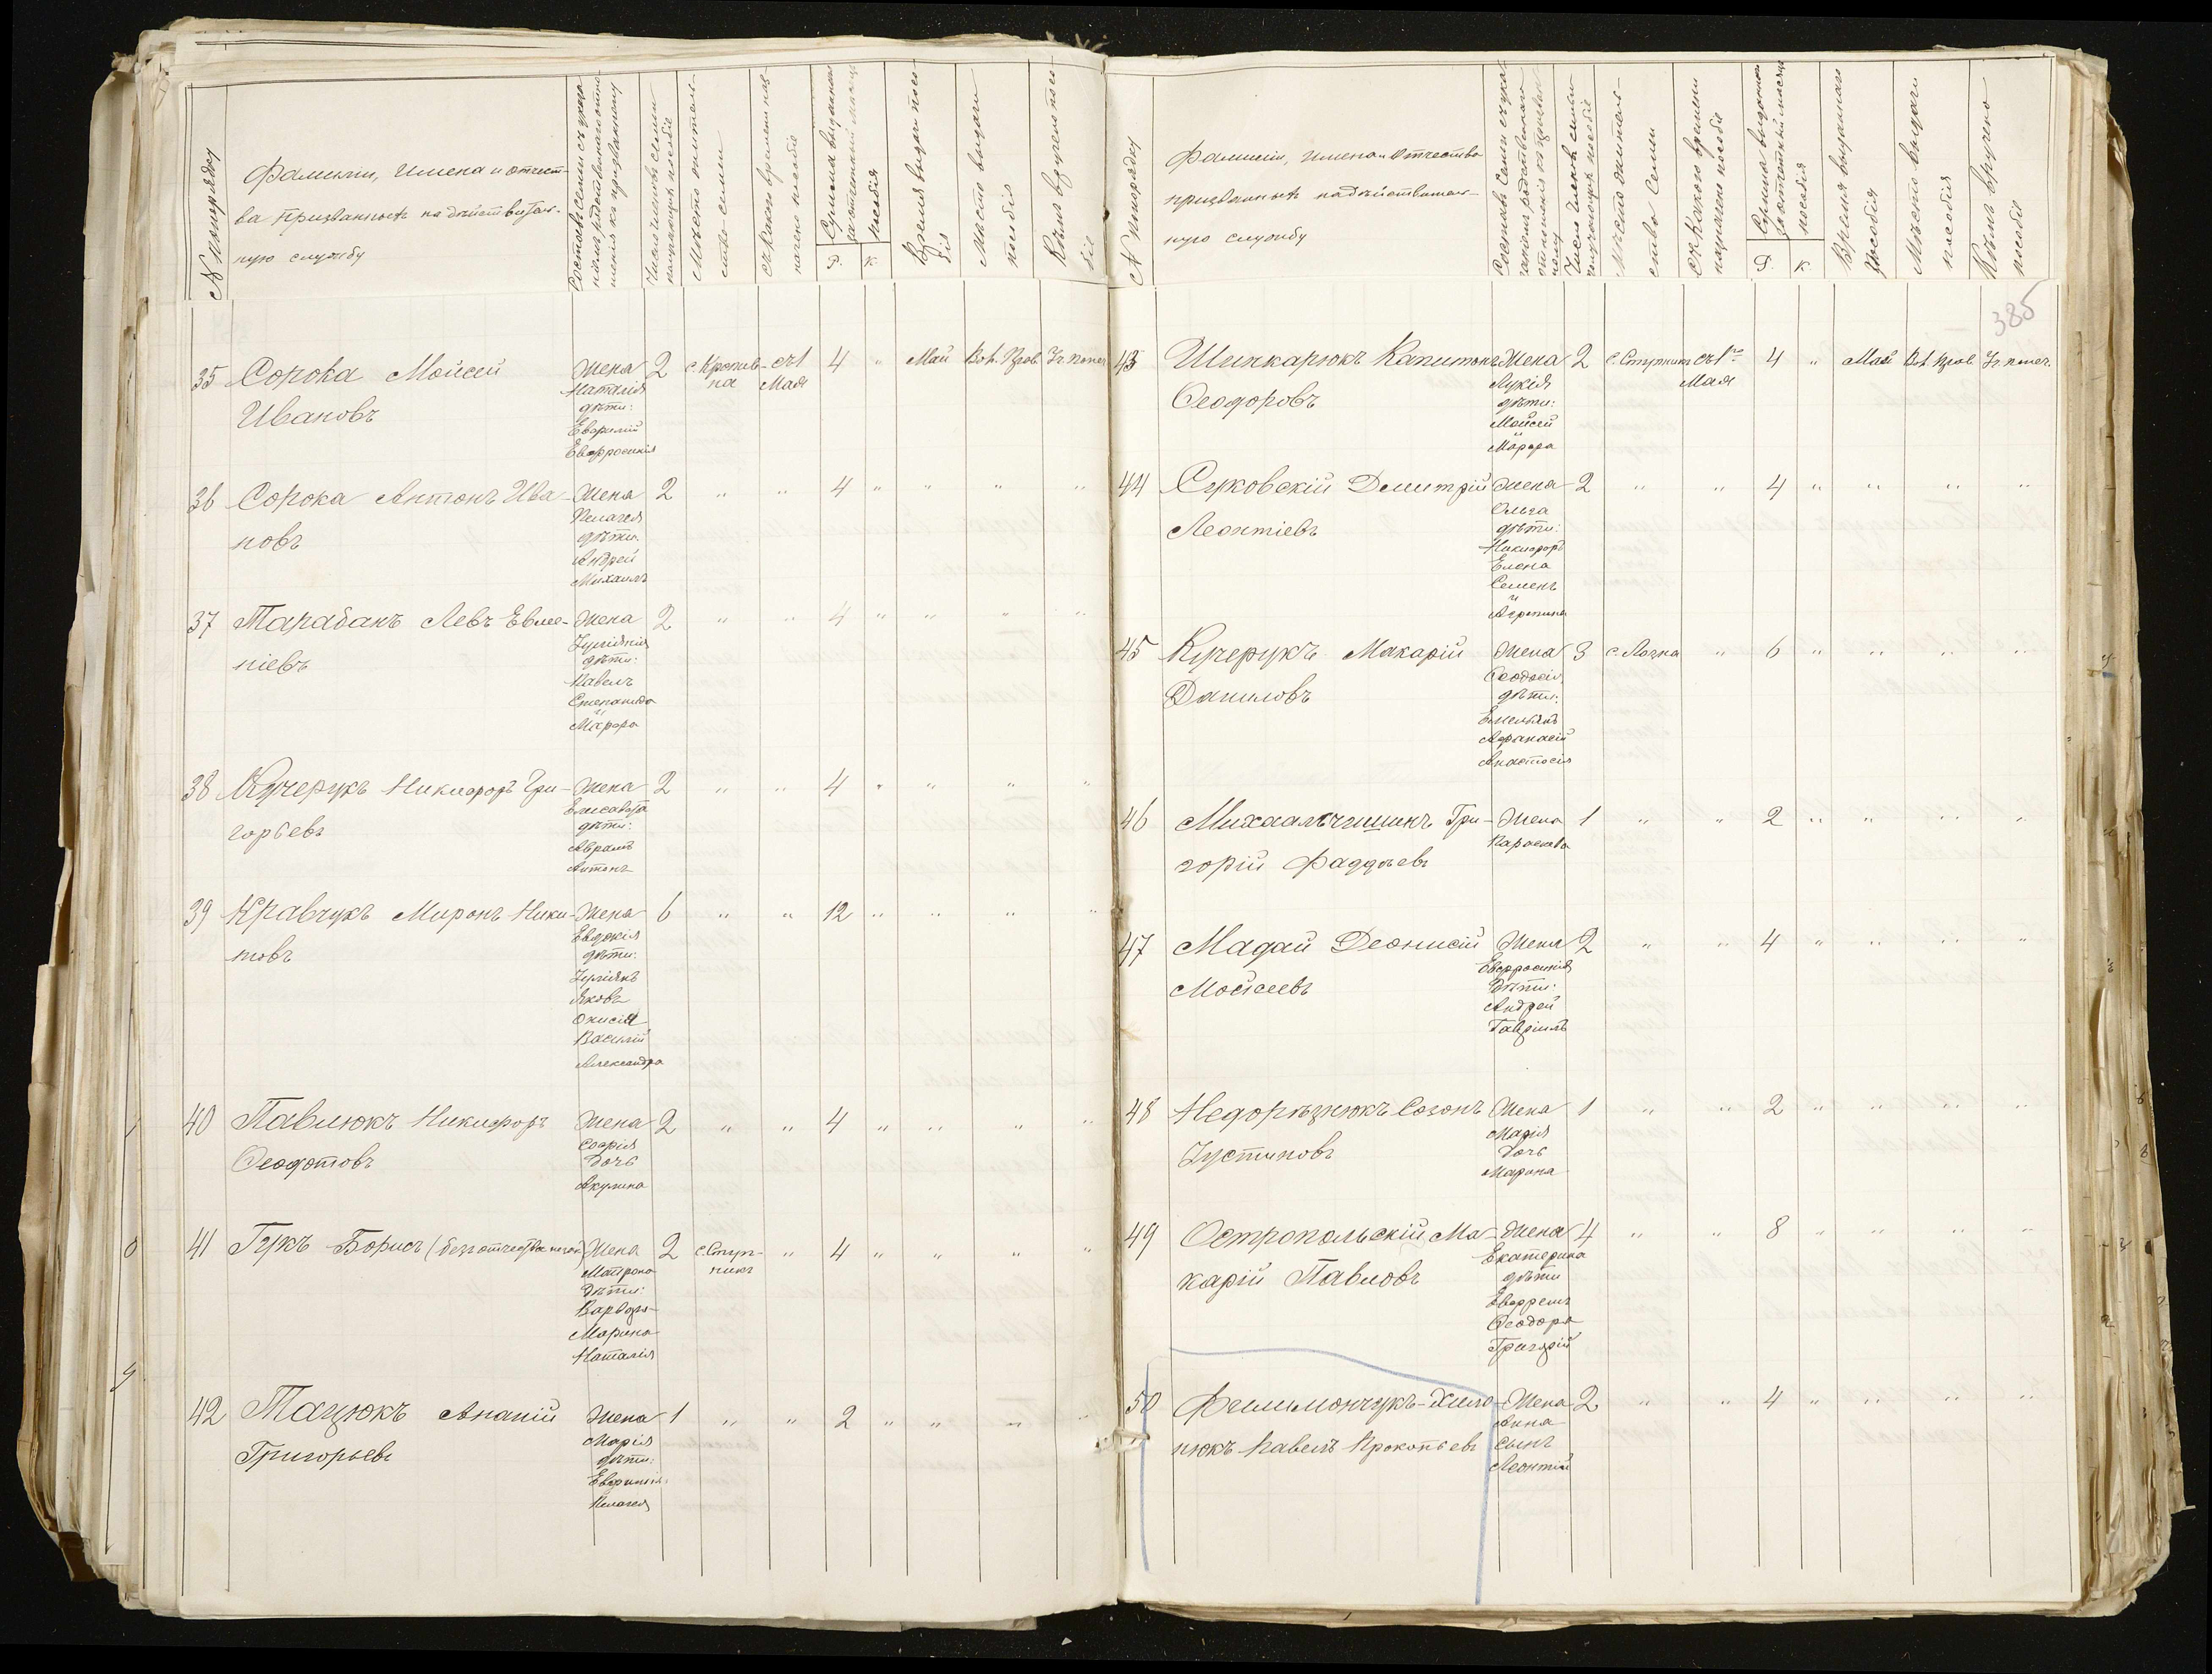 № по порядку
Фамиліи, имена и отчест-
ва призванныхъ на дѣйствитель-
ную службу
Составъ семьи съ указа-
Число членовъ семьи
получающихъ пособіе
Мѣсто житель-
ство семьи
Съ какого времени наз-
начено пособіе
Сумма выданнаго
пособія
Р.
К.
Время выдачи посо-
бія
Мѣсто выдачи
пособія
Кѣмъ вручено посо-
біе
35 Сорока Мойсей Жена 2 с. Кропив- съ 1 4 " Май Вол. Прав.
Ивановъ Наталія на Мая
дѣти:
Евфимій
Евфросинія
36 Сорока Антонъ Ива- Жена 2 " " 4 " " " "
новъ Пелагея
дѣти:
Андрей
Михаилъ
37 Тарабанъ Левъ Евме- Жена 2 " " 4 " " " "
ніевъ Іуліянія
дѣти:
Павелъ
Степанида
и
Марфа
38 Кучерукъ Никифоръ Гри- Жена 2 " " 4 " " " "
горьевъ Елисавета
дѣти:
Аврамъ
Антонъ
39 Кравчукъ Миронъ Ники- Жена 6 " " 12 " " " "
товъ Евдокія
дѣти:
Іуліянъ
Яковъ
Онисія
Василій
Александра
40 Павлюкъ Никифоръ Жена 2 " " 4 " " " "
Ѳеодотовъ Софія
Дочь
Акулина
41 Гукъ Борисъ (безъ отчества) Жена 2 с. Ступ- " 4 " " " "
Матрона никъ
Дѣти:
Варвара
Марина
Наталія
42 Тацюкъ Ананій Жена 1 " " 2 " " " "
Григорьевъ Марія
дѣти:
Евфимія
Пелагея
№ по порядку
Фамиліи, имена и отчества
призванныхъ на дѣйствитель-
ную службу
Составъ семьи съ ука-
Число членовъ семьи
получающихъ пособіе
Мѣсто житель-
ство семьи
Съ какого времени
назначено пособіе
Сумма выданнаго
пособія
Р.
К.
Время выданнаго
пособія
Мѣсто выдачи
пособія
Кѣмъ вручено
пособіе
385
43 Шинкарюкъ Капитонъ Жена 2 с. Ступникъ съ 1го 4 " Май Вол. Прав.
Ѳеодоровъ Лукія Мая
дѣти:
Мойсей
и
Марфа
44 Суковскій Димитрій Жена 2 " " 4 " " " "
Леонтіевъ Ольга
дѣти:
Никифоръ
Елена
Семенъ
и
Агрипина
45 Кучерукъ Макарій Жена 3 с. Лозна " 6 " " " "
Даниловъ Ѳеодосія
дѣти:
Емельянъ
Афанасій
Анастасія
46 Михаальчишинъ Гри- Жена 1 " " 2 " " " "
горій Фаддѣевъ Параскева
47 Мадай Деонисій Жена 2 " " 4 " " " "
Мойсеевъ Евфросинія
Дѣти:
Андрей
Гавріилъ
48 Недорѣзнюкъ Созонъ Жена 1 " " 2 " " " "
Іустиновъ Марія
Дочь
Марина
49 Остропольскій Ма- Жена 4 " " 8 " " " "
карій Павловъ Екатерина
дѣти
Евфремъ
Ѳеодора
Григорій
50 Филимончукъ-Хило- Жена 2 " " 4 " " " "
нюкъ Павелъ Прокопьевъ Анна
Сынъ
Леонтій